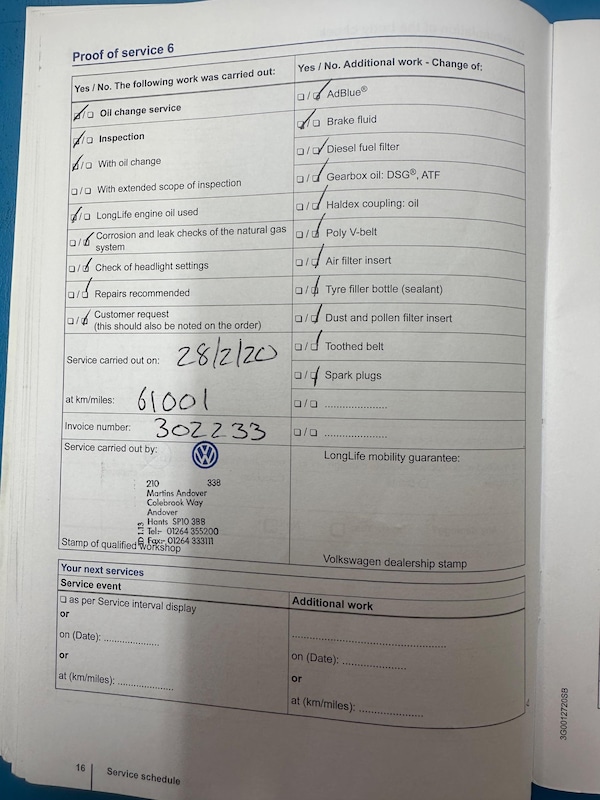 Proof of service 6
Yes / No. The following work was carried out:
☑/☐ Oil change service
☑/☐ Inspection
☑/☐ With oil change
☐/☐ With extended scope of inspection
☑/☐ LongLife engine oil used
☐/☑ Corrosion and leak checks of the natural gas
system
☐/☑ Check of headlight settings
☐/☑ Repairs recommended
☐/☑ Customer request
(this should also be noted on the order)
Service carried out on: 28/2/20
at km/miles: 61001
Invoice number: 302233
Service carried out by:
VW
210 338
Martins Andover
Colebrook Way
Andover
Hants SP10 3BB
Tel:- 01264 355200
Fax:- 01264 333111
Stamp of qualified workshop
Yes / No. Additional work - Change of:
☐/☑ AdBlue®
☑/☐ Brake fluid
☐/☑ Diesel fuel filter
☐/☑ Gearbox oil: DSG®, ATF
☐/☑ Haldex coupling: oil
☐/☑ Poly V-belt
☐/☑ Air filter insert
☐/☑ Tyre filler bottle (sealant)
☐/☑ Dust and pollen filter insert
☐/☑ Toothed belt
☐/☑ Spark plugs
☐/☐ ....................
☐/☐ ....................
LongLife mobility guarantee:
Volkswagen dealership stamp
Your next services
Service event
☐ as per Service interval display
or
on (Date): ..................
or
at (km/miles): ..................
Additional work
..................................................
on (Date): .....................
or
at (km/miles): .....................
16 Service schedule
3G0012720SB